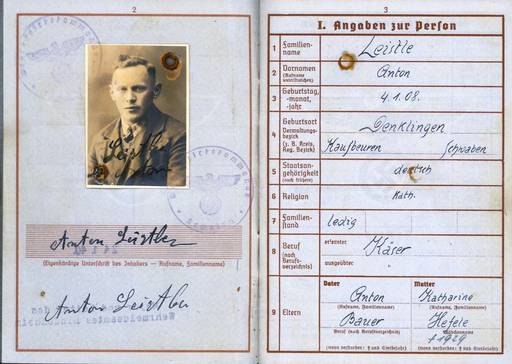 2
Leistle
Anton
Anton Leistle
(Eigenhändige Unterschrift des Inhabers — Rufname, Familienname)
Anton Leistle
3
I. Angaben zur Person
1 Familienname Leistle
2 Vornamen (Rufname unterstreichen) Anton
3 Geburtstag, -monat, -jahr 4.1.08.
4 Geburtsort Denklingen
Verwaltungsbezirk (z. B. Kreis, Reg. Bezirk) Kaufbeuren Schwaben
5 Staatsangehörigkeit (auch frühere) deutsch
6 Religion Kath.
7 Familienstand ledig
8 Beruf (nach Berufsverzeichnis) erlernter Käser
ausgeübter
Vater Mutter
Anton Katharina
(Rufname, Familienname) (Rufname, Familienname)
9 Eltern Bauer Hefele
Beruf (nach Berufsverzeichnis) (Mädchenname)
† 1929
(wenn verstorben: † und Sterbejahr) (wenn verstorben: † und Sterbejahr)